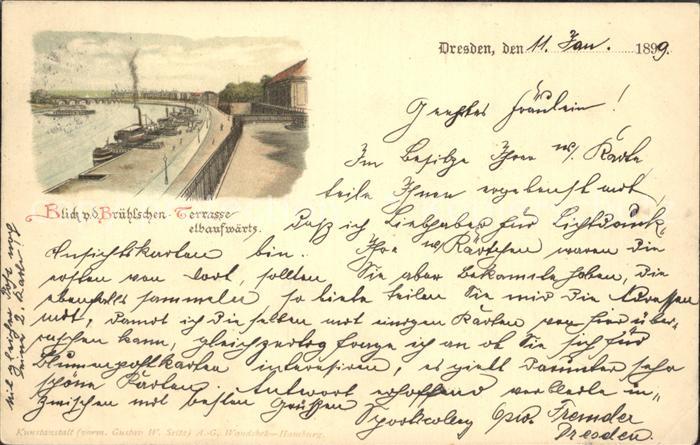 Dresden, den 11. Jan. 1899.
Geehrtes Fräulein!
Im Besitze Ihrer w. Karte
teile Ihnen ergebenst mit,
Blick v. d. Brühlschen Terrasse
elbaufwärts.
daß ich Liebhaber für Lichtdruck-
Ansichtskarten bin. Ihre w. Kärtchen waren die
ersten von dort, sollten Sie aber Bekannte haben, die
ebenfalls sammeln so bitte teilen Sie mir die Adressen
mit, damit ich dieselben mit einigen Karten von hier über-
raschen kann, gleichzeitig frage ich an ob Sie sich für
Blumenpostkarten interessieren, es giebt darunter sehr
schöne Karten. Antwort erhoffend verbleibe in-
zwischen mit besten Grüßen
Dresden
mit gleicher Post noch
2 Karten
Kunstanstalt (vorm. Gustav W. Seitz) A.-G., Wandsbek-Hamburg.